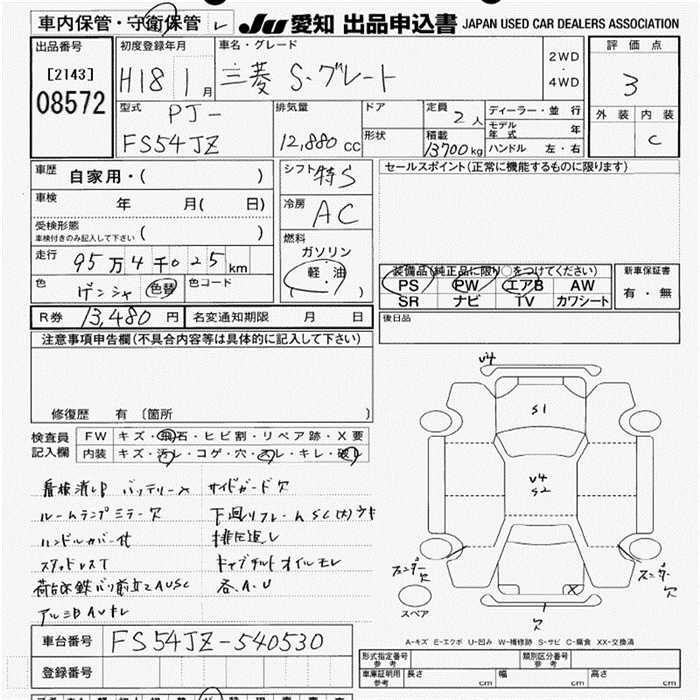 車内保管・守衛保管 レ
JU 愛知 出品申込書 JAPAN USED CAR DEALERS ASSOCIATION
出品番号
[2143]
08572
初度登録年月
H18 1月
車名・グレード
三菱 S.グレート
2WD
・
4WD
評価点
3
外装 内装
C
型式
PJ-
FS54JZ
排気量
12,880 cc
ドア
形状
定員
2人
積載
13700kg
ディーラー・並行
モデル年式 年
ハンドル 左・右
車歴
自家用・( )
車検 年 月( 日)
受検形態
車検付きのみ記入して下さい ( )
走行
95万4千025km
色
ゲンシャ 色替
色コード
シフト
特S
冷房
AC
燃料
ガソリン
軽・油
( )
セールスポイント(正常に機能するものに限ります)
装備品(純正品に限り○をつけてください)
PS PW エアB AW
SR ナビ TV カワシート
新車保証書
有・無
R券 13,480円
名変通知期限 月 日
後日品
注意事項申告欄(不具合内容等は具体的に記入して下さい)
修復歴 有 〔箇所 〕
検査員
記入欄
FW キズ・飛石・ヒビ割・リペア跡・X要
内装 キズ・汚レ・コゲ・穴・スレ・キレ・破レ
看板消しP バッテリーX サイドガード欠
ルームランプミラー欠
ハンドルカバー付 排圧違し
スタッドレスT キャブチルトオイルモレ
各.A.U
V4
S1
V4
S2
X
フェンダー
欠
フェンダー
欠
欠
スペア
A-キズ E-エクボ U-凹み W-補修跡 S-サビ C-腐食 XX-交換済
車台番号 FS54JZ-540530
登録番号
形式指定番号
参考
類別区分番号
参考
車庫証明用
参考
長さ cm 幅 cm 高さ cm